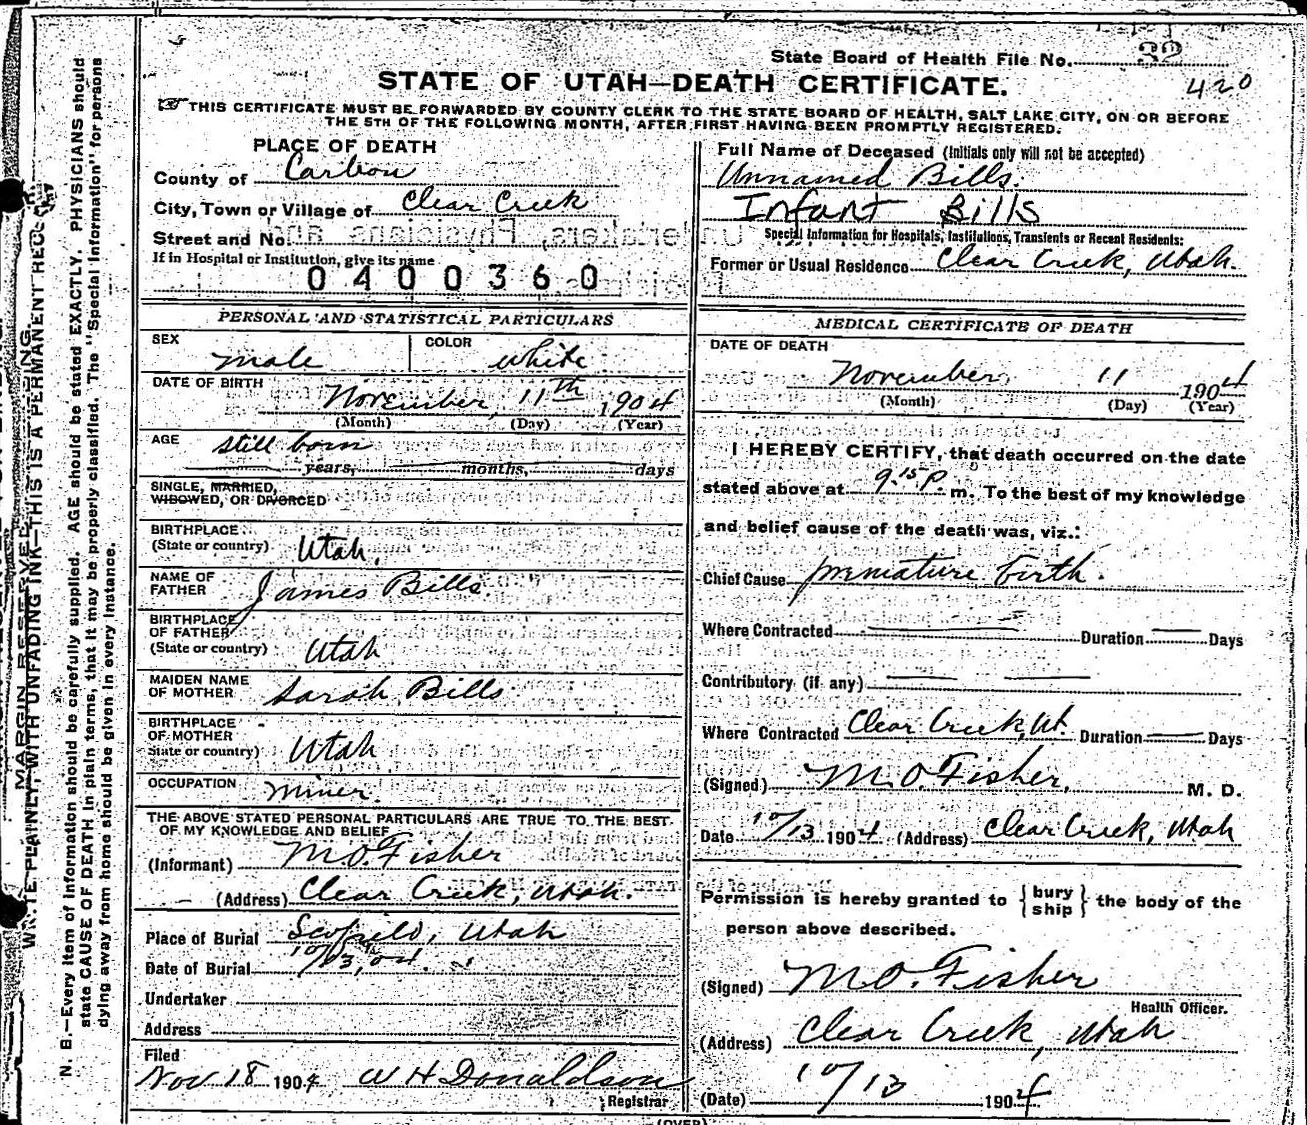 State Board of Health File No. 32
420
STATE OF UTAH—DEATH CERTIFICATE.
THIS CERTIFICATE MUST BE FORWARDED BY COUNTY CLERK TO THE STATE BOARD OF HEALTH, SALT LAKE CITY, ON OR BEFORE
THE 5TH OF THE FOLLOWING MONTH, AFTER FIRST HAVING BEEN PROMPTLY REGISTERED.
PLACE OF DEATH
County of Carbon
City, Town or Village of Clear Creek
Street and No.
If in Hospital or Institution, give its name
0400360
Full Name of Deceased (Initials only will not be accepted)
Unnamed Bills.
Infant Bills
Special Information for Hospitals, Institutions, Transients or Recent Residents:
Former or Usual Residence Clear Creek, Utah.
PERSONAL AND STATISTICAL PARTICULARS
SEX male COLOR white
DATE OF BIRTH November, 11th 1904
(Month) (Day) (Year)
AGE still born
years, months, days
SINGLE, MARRIED,
WIDOWED, OR DIVORCED
BIRTHPLACE
(State or country) Utah.
NAME OF
FATHER James Bills.
BIRTHPLACE
OF FATHER
(State or country) Utah
MAIDEN NAME
OF MOTHER Sarah Bills
BIRTHPLACE
OF MOTHER
State or country) Utah
OCCUPATION miner.
THE ABOVE STATED PERSONAL PARTICULARS ARE TRUE TO THE BEST
OF MY KNOWLEDGE AND BELIEF
(Informant) M.O. Fisher
(Address) Clear Creek, Utah.
Place of Burial Scofield, Utah
Date of Burial 10/13, 04.
Undertaker
Address
Filed
Nov 18 1904 W H Donaldson
Registrar
MEDICAL CERTIFICATE OF DEATH
DATE OF DEATH
November 11 1904
(Month) (Day) (Year)
I HEREBY CERTIFY, that death occurred on the date
stated above at 9.15 P. m. To the best of my knowledge
and belief cause of the death was, viz.:
Chief Cause premature birth.
Where Contracted Duration Days
Contributory (if any)
Where Contracted Clear Creek, Ut. Duration Days
(Signed) M.O. Fisher, M. D.
Date 10/13 1904 (Address) Clear Creek, Utah
Permission is hereby granted to { bury ship } the body of the
person above described.
(Signed) M.O. Fisher
Health Officer.
(Address) Clear Creek, Utah
(Date) 10/13 1904
(OVER)
MARGIN RESERVED
WRITE PLAINLY, WITH UNFADING INK—THIS IS A PERMANENT RECORD
N. B.—Every item of information should be carefully supplied. AGE should be stated EXACTLY. PHYSICIANS should
state CAUSE OF DEATH in plain terms, that it may be properly classified. The "Special Information" for persons
dying away from home should be given in every instance.